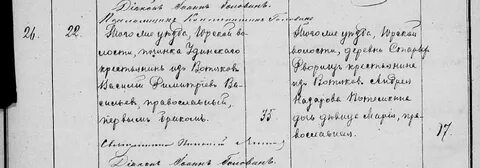 Діаконъ Іоаннъ Голованъ.
26. 22. Того же уѣзда, Юрской во-
лости, починка Удинскаго
крестьянинъ изъ Вотяковъ
Василій Димитріевъ Ва-
сильевъ, православный,
первымъ бракомъ. 35.
Того же уѣзда, Юрской
волости, деревни Старыхъ
крестьянина
изъ Вотяковъ Андрея
Назарова
дочь дѣвица Марія, пра-
вославная. 17.
Священникъ
Діаконъ Іоаннъ Голованъ.